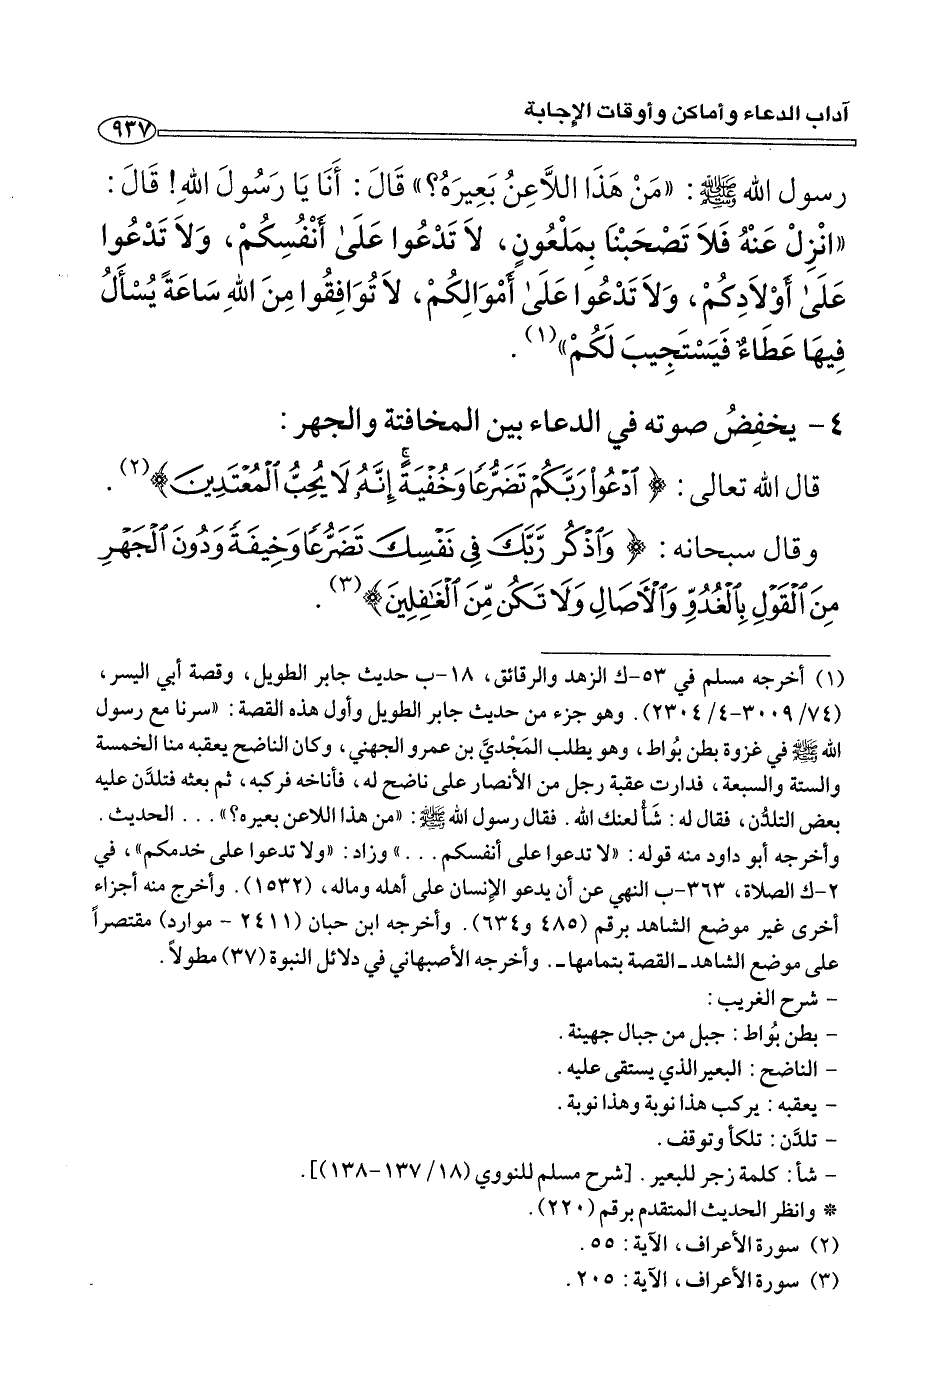 آداب الدعاء وأماكن وأوقات الإجابة
٩٣٧
رسول الله ﷺ: «مَنْ هَذَا اللاَّعِنُ بَعِيرَهُ؟» قَالَ: أَنَا يَا رَسُولَ اللهِ! قَالَ:
«انْزِلْ عَنْهُ فَلاَ تَصْحَبْنَا بِمَلْعُونٍ، لاَ تَدْعُوا عَلَىٰ أَنْفُسِكُمْ، وَلاَ تَدْعُوا
عَلَىٰ أَوْلاَدِكُمْ، وَلاَ تَدْعُوا عَلَىٰ أَمْوَالِكُمْ، لاَ تُوَافِقُوا مِنَ اللهِ سَاعَةً يُسْأَلُ
فِيهَا عَطَاءٌ فَيَسْتَجِيبَ لَكُمْ»(١).
٤- يخفِضُ صوته في الدعاء بين المخافتة والجهر:
قال الله تعالى: ﴿ ٱدْعُوا۟ رَبَّكُمْ تَضَرُّعًا وَخُفْيَةً ۚ إِنَّهُۥ لَا يُحِبُّ ٱلْمُعْتَدِينَ﴾(٢).
وقال سبحانه: ﴿ وَٱذْكُر رَّبَّكَ فِى نَفْسِكَ تَضَرُّعًا وَخِيفَةً وَدُونَ ٱلْجَهْرِ
مِنَ ٱلْقَوْلِ بِٱلْغُدُوِّ وَٱلْأَصَالِ وَلَا تَكُن مِّنَ ٱلْغَٰفِلِينَ﴾(٣).
(١) أخرجه مسلم في ٥٣-ك الزهد والرقائق، ١٨-ب حديث جابر الطويل، وقصة أبي اليسر،
(٧٤/ ٣٠٠٩-٤/ ٢٣٠٤). وهو جزء من حديث جابر الطويل وأول هذه القصة: «سرنا مع رسول
الله ﷺ في غزوة بطن بُواط، وهو يطلب المَجْديَّ بن عمرو الجهني، وكان الناضح يعقبه منا الخمسة
والستة والسبعة، فدارت عقبة رجل من الأنصار على ناضح له، فأناخه فركبه، ثم بعثه فتلدَّن عليه
بعض التلدُّن، فقال له: شَأْ لعنك الله. فقال رسول الله ﷺ: «من هذا اللاعن بعيره؟»... الحديث.
وأخرجه أبو داود منه قوله: «لا تدعوا على أنفسكم...» وزاد: «ولا تدعوا على خدمكم»، في
٢-ك الصلاة، ٣٦٣-ب النهي عن أن يدعو الإنسان على أهله وماله، (١٥٣٢). وأخرج منه أجزاء
أخرى غير موضع الشاهد برقم (٤٨٥ و٦٣٤). وأخرجه ابن حبان (٢٤١١ - موارد) مقتصراً
على موضع الشاهد ـ القصة بتمامها ـ. وأخرجه الأصبهاني في دلائل النبوة (٣٧) مطولاً.
- شرح الغريب:
- بطن بُواط: جبل من جبال جهينة.
- الناضح: البعير الذي يستقى عليه.
- يعقبه: يركب هذا نوبة وهذا نوبة.
- تلدَّن: تلكأ وتوقف.
- شأ: كلمة زجر للبعير. [شرح مسلم للنووي (١٨/ ١٣٧-١٣٨)].
* وانظر الحديث المتقدم برقم (٢٢٠).
(٢) سورة الأعراف، الآية: ٥٥.
(٣) سورة الأعراف، الآية: ٢٠٥.